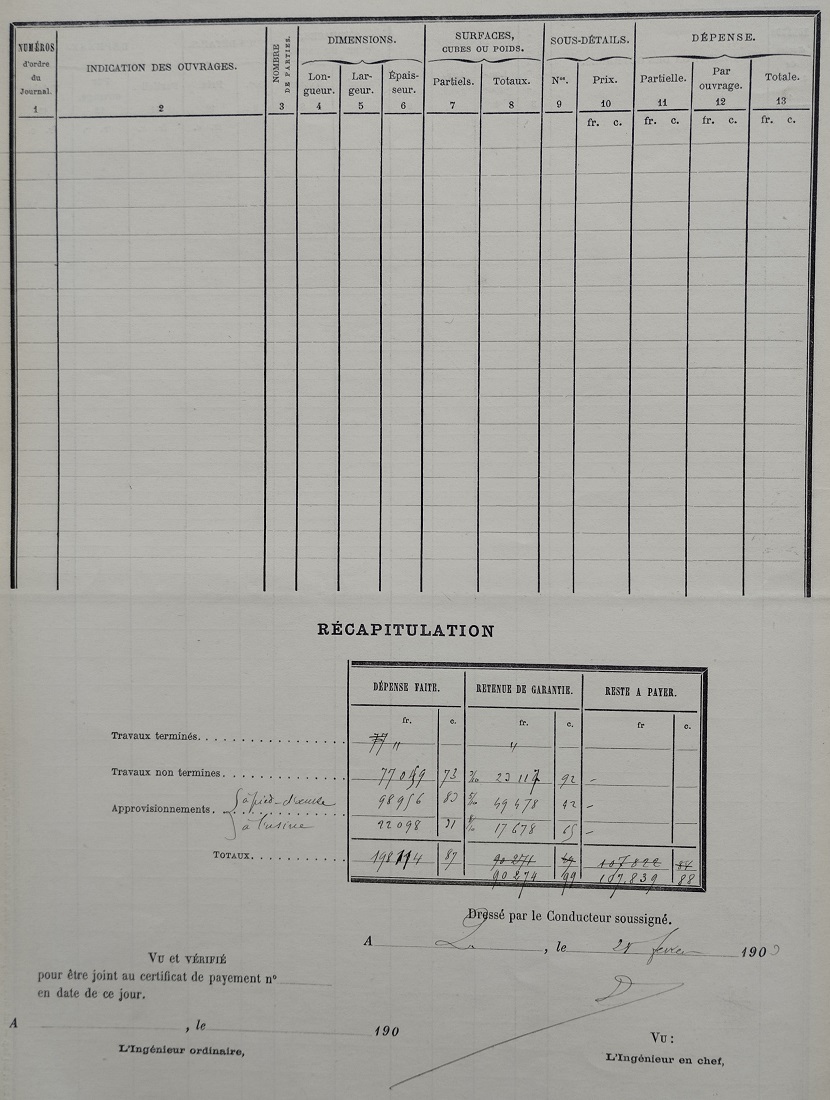 NUMÉROS d'ordre du Journal. 1
INDICATION DES OUVRAGES. 2
NOMBRE DE PARTIES. 3
DIMENSIONS.
Lon-gueur. 4
Lar-geur. 5
Épais-seur. 6
SURFACES, CUBES OU POIDS.
Partiels. 7
Totaux. 8
SOUS-DÉTAILS.
Nos. 9
Prix. 10
DÉPENSE.
Partielle. 11
Par ouvrage. 12
Totale. 13
fr. c. fr. c. fr. c. fr. c.
RÉCAPITULATION
DÉPENSE FAITE. RETENUE DE GARANTIE. RESTE A PAYER.
fr. c. fr. c. fr c.
Travaux terminés. 77 " "
Travaux non terminés. 77 059 73 3/10 23 117 92 -
Approvisionnements. à pied-d'œuvre 98 956 83 5/10 49 478 42 -
à l'usine 22 098 31 8/10 17 678 65 -
TOTAUX. 198 114 87 90 274 107 822 84
90 274 99 107.839 88
Dressé par le Conducteur soussigné.
A , le 28 février 1903
VU et VÉRIFIÉ
pour être joint au certificat de payement n°
en date de ce jour.
A , le 190
L'Ingénieur ordinaire,
VU :
L'Ingénieur en chef,